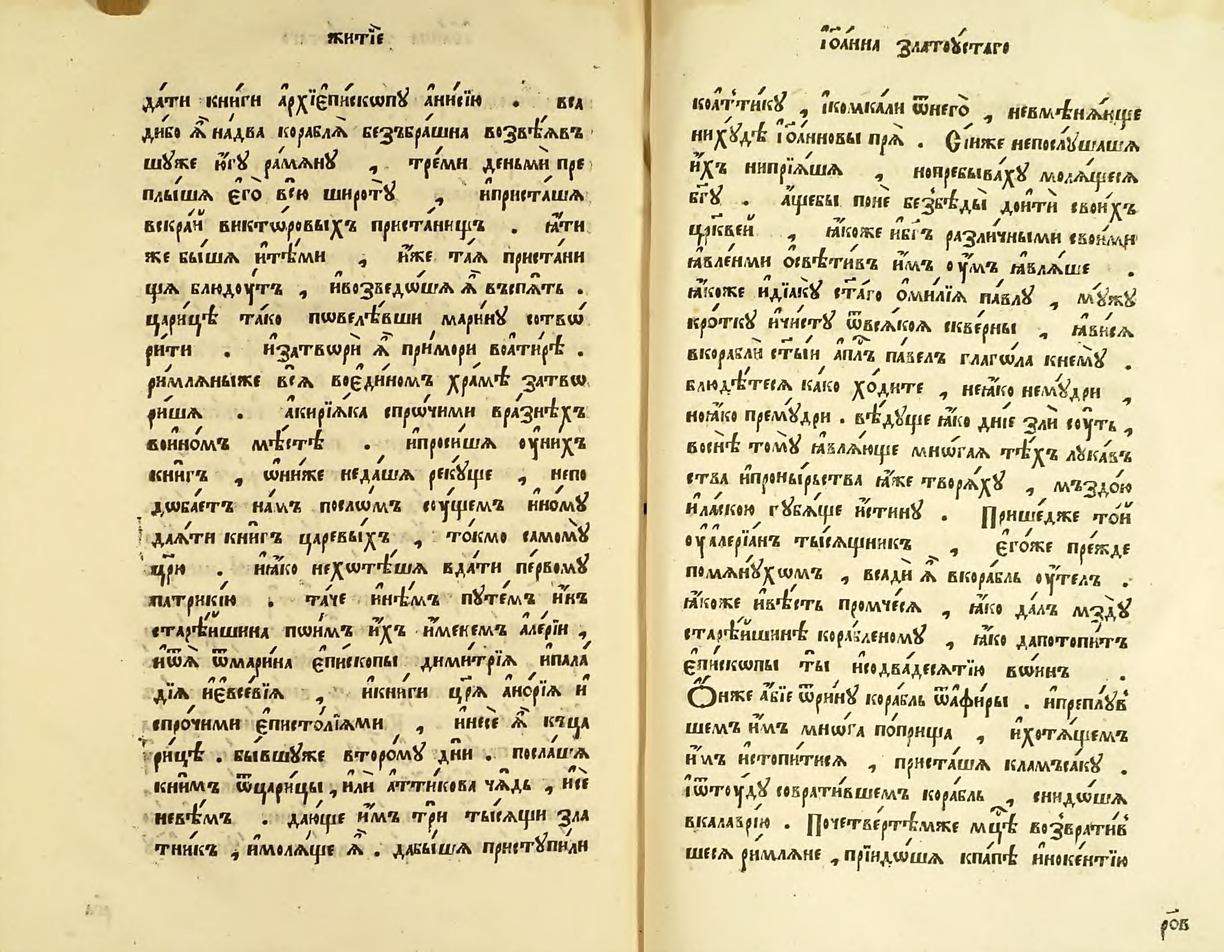 житїе
да́ти кни́ги а҆рхїєпи́скѡпꙋ ани́сїю . вса
ди́бо ѧ҆̀ на́два корабля̀ безъбра́шна возвѣ́явъ
шꙋже ю҆́гꙋ рамѧ́нꙋ , тре́ми деньмѝ пре
плы́шѧ є҆го̀ всю̀ широтꙋ̀ , и҆приста́шѧ
вскра́й викто́ровыхъ приста́нищъ . ꙗ҆́ти
же бы́шѧ и҆тѣ́ми , и҆́же та́ѧ приста́ни
щѧ блюдоу́тъ , и҆возведо́шѧ ѧ҆̀ въспѧ́ть .
цари́цѣ та́ко пѡвелѣ́вши мари́нꙋ сотвѡ
ри́ти . и҆затвори̇̀ ѧ҆̀ примори воати́рѣ .
ри́млѧныже всѧ̀ воє҆ди́номъ хра́мѣ затвѡ
ри́шѧ . а҆кирїѧ́ка спрѡ́чими вра́знѣхъ
вои́номъ мѣ́стѣ . и҆проси́шѧ оу҆ни́хъ
кни́гъ , ѡ҆ни́же неда́шѧ реку́ще , непо
дѡба́етъ на́мъ посло́мъ су́щемъ и҆но́мꙋ
даѧ́ти кни́гъ царе́выхъ , то́кмо самомꙋ̀
цр҃ю̀ . и҆ꙗ҆́ко нехотѣ́шѧ вда́ти пе́рвомꙋ
патри́кїю . та́че и҆нѣ́мъ пꙋте́мъ и҆́нъ
старѣ́йшина пои́мъ и҆́хъ и҆́менемъ але́рїи ,
и҆ѿѧ̀ ѿмари́на є҆пи́скопы дими́трїѧ и҆пала́
дїѧ и҆є҆всевїѧ , и҆кни́ги цр҃ѧ̀ ано́рїѧ и҆
спро́чими є҆писто́лїѧми , и҆несѐ ѧ҆̀ къца
ри́цѣ . бы́вшꙋже второ́мꙋ дн҃и . посла́шѧ
кни́мъ ѿцари́цы , и҆лѝ а҆ттикова ча́дь , и҆сѐ
невѣ́мъ . даю́ще и҆́мъ трѝ ты́сѧщи зла
тни́къ , и҆молѧ́ще ѧ҆̀ . дабы́шѧ пристꙋпи́ли
і҆ѡа́нна златоу́стаго
коа҆т́тикꙋ , і҆комка́ли ѿнего̀ , невмѣнѧ́юще
нихꙋдѣ̀ і҆ѡа́нновы прѧ̀ . Сі́иже непослу́шашѧ
и҆́хъ нипрїѧ́шѧ , нопребыва́хꙋ молѧ́щесѧ
бг҃ꙋ . а҆́щебы понѐ безбѣды̀ доитѝ свои́хъ
цр҃кве́й , ꙗ҆́коже и҆бг҃ъ разли́чными свои́ми
ꙗ҆вле́нми ѡ҆свѣти́въ и҆́мъ оу҆́мъ ꙗ҆влѧ́ше .
ꙗ҆́коже и҆дїа́кꙋ ст҃а́го ѻ҆ми́лїѧ па́влꙋ , мꙋ́жꙋ
кро́ткꙋ и҆чи́стꙋ ѿвсѧ́коѧ скве́рны , ꙗ҆ви́сѧ
вкораблѝ ст҃ы́и а҆пл҃ъ па́велъ глаго́ла кнемꙋ̀ .
блюдѣ́тесѧ ка́ко хо́дите , неꙗ҆́ко нему́дри ,
ноꙗ҆́ко прему́дри . вѣ́дꙋще ꙗ҆́ко дні́е злѝ соу́ть ,
воснѣ̀ то́мꙋ ꙗ҆влѧ́юще мно́гаѧ тѣ́хъ лꙋка́в
ства и҆проны́рьства ꙗ҆́же творѧ́хꙋ , мъздо́ю
и҆ла́скою гꙋбѧ́ще и҆́стинꙋ . Прише́дже то́й
оу҆але́рїан ты́сѧщник , є҆го́же пре́жде
помѧну́хомъ , всадѝ ѧ҆̀ вкора́бль оу҆те́лъ .
ꙗ҆́коже и҆вѣ́сть промче́сѧ , ꙗ҆́ко да́лъ мздꙋ̀
старѣ́йшинѣ кора́бленомꙋ , ꙗ҆́ко дапотопи́тъ
є҆пи́скѡпы ты̀ и҆содвадесѧ́тїю во́ин .
Ѻ҆ни́же а҆́бїе ѿри́нꙋ кора́бль ѿафи́ры . и҆преплу́в
шемъ и҆́мъ мно́га по́прища , и҆хотѧ́щемъ
и҆́мъ и҆стопи́тисѧ , приста́шѧ кламъса́кꙋ .
і҆ѿтоу́дꙋ соврати́вшемъ кора́бль , снидо́шѧ
вкалаврі́ю . Почетве́ртѣмже мц҃ѣ возврати́в
шесѧ ри́млѧне , прїидо́шѧ кпа́пѣ и҆ноке́нтїю
рѻв